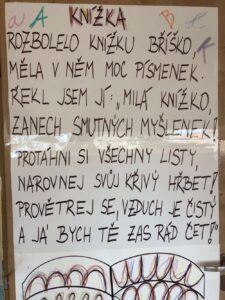 a A KNÍŽKA B K
ROZBOLELO KNÍŽKU BŘÍŠKO,
MĚLA V NĚM MOC PÍSMENEK.
ŘEKL JSEM JÍ: „MILÁ KNÍŽKO,
ZANECH SMUTNÝCH MYŠLENEK!
PROTÁHNI SI VŠECHNY LISTY,
NAROVNEJ SVŮJ KŘIVÝ HŘBET!
PROVĚTREJ SE, VZDUCH JE ČISTÝ
A JÁ BYCH TĚ ZAS RÁD ČET!"